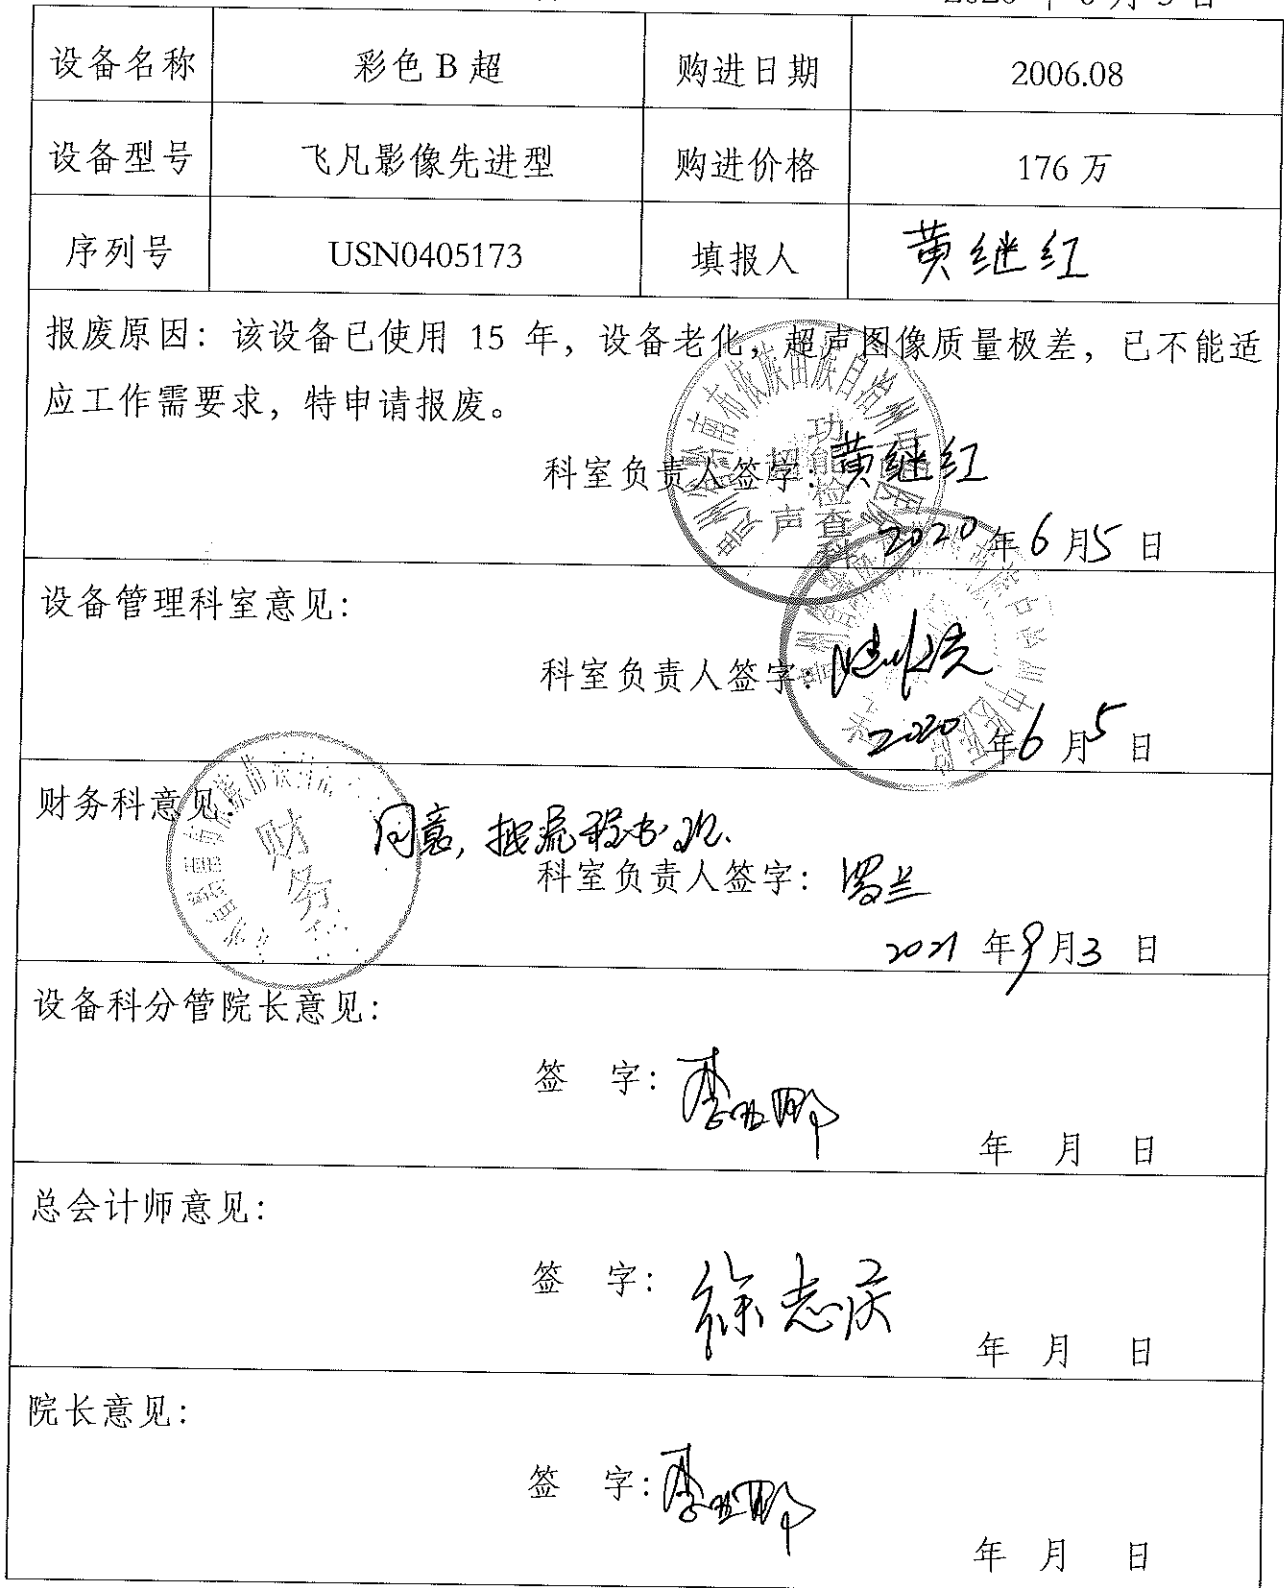 2020 年 6 月 5 日
设备名称 彩色 B 超 购进日期 2006.08
设备型号 飞凡影像先进型 购进价格 176 万
序列号 USN0405173 填报人 黄继红
报废原因：该设备已使用 15 年，设备老化，超声图像质量极差，已不能适
应工作需要求，特申请报废。
科室负责人签字：黄继红
2020 年 6 月 5 日
设备管理科室意见：
科室负责人签字：
2020 年 6 月 5 日
财务科意见：
同意，按流程办理.
科室负责人签字：罗兰
2021 年 9 月 3 日
设备科分管院长意见：
签 字：
年 月 日
总会计师意见：
签 字：徐志庆
年 月 日
院长意见：
签 字：
年 月 日